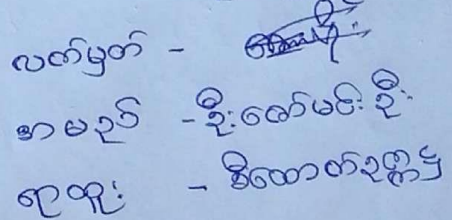 လက်မှတ် -
အမည် - ဦးဇော်မင်းဦး
ရာထူး - စီထောက်ဥက္ကဋ္ဌ